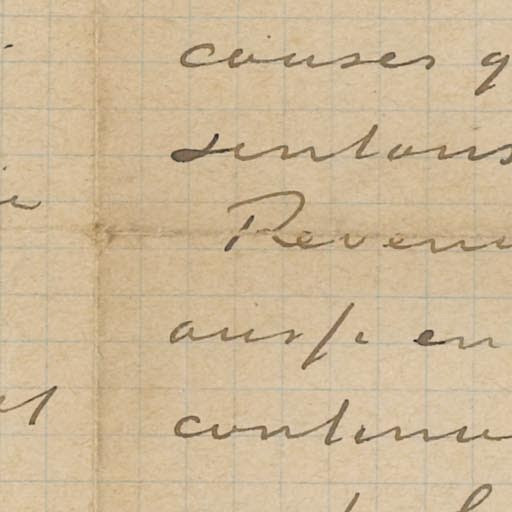 causes q
sentons
Revenu
aussi en
continu